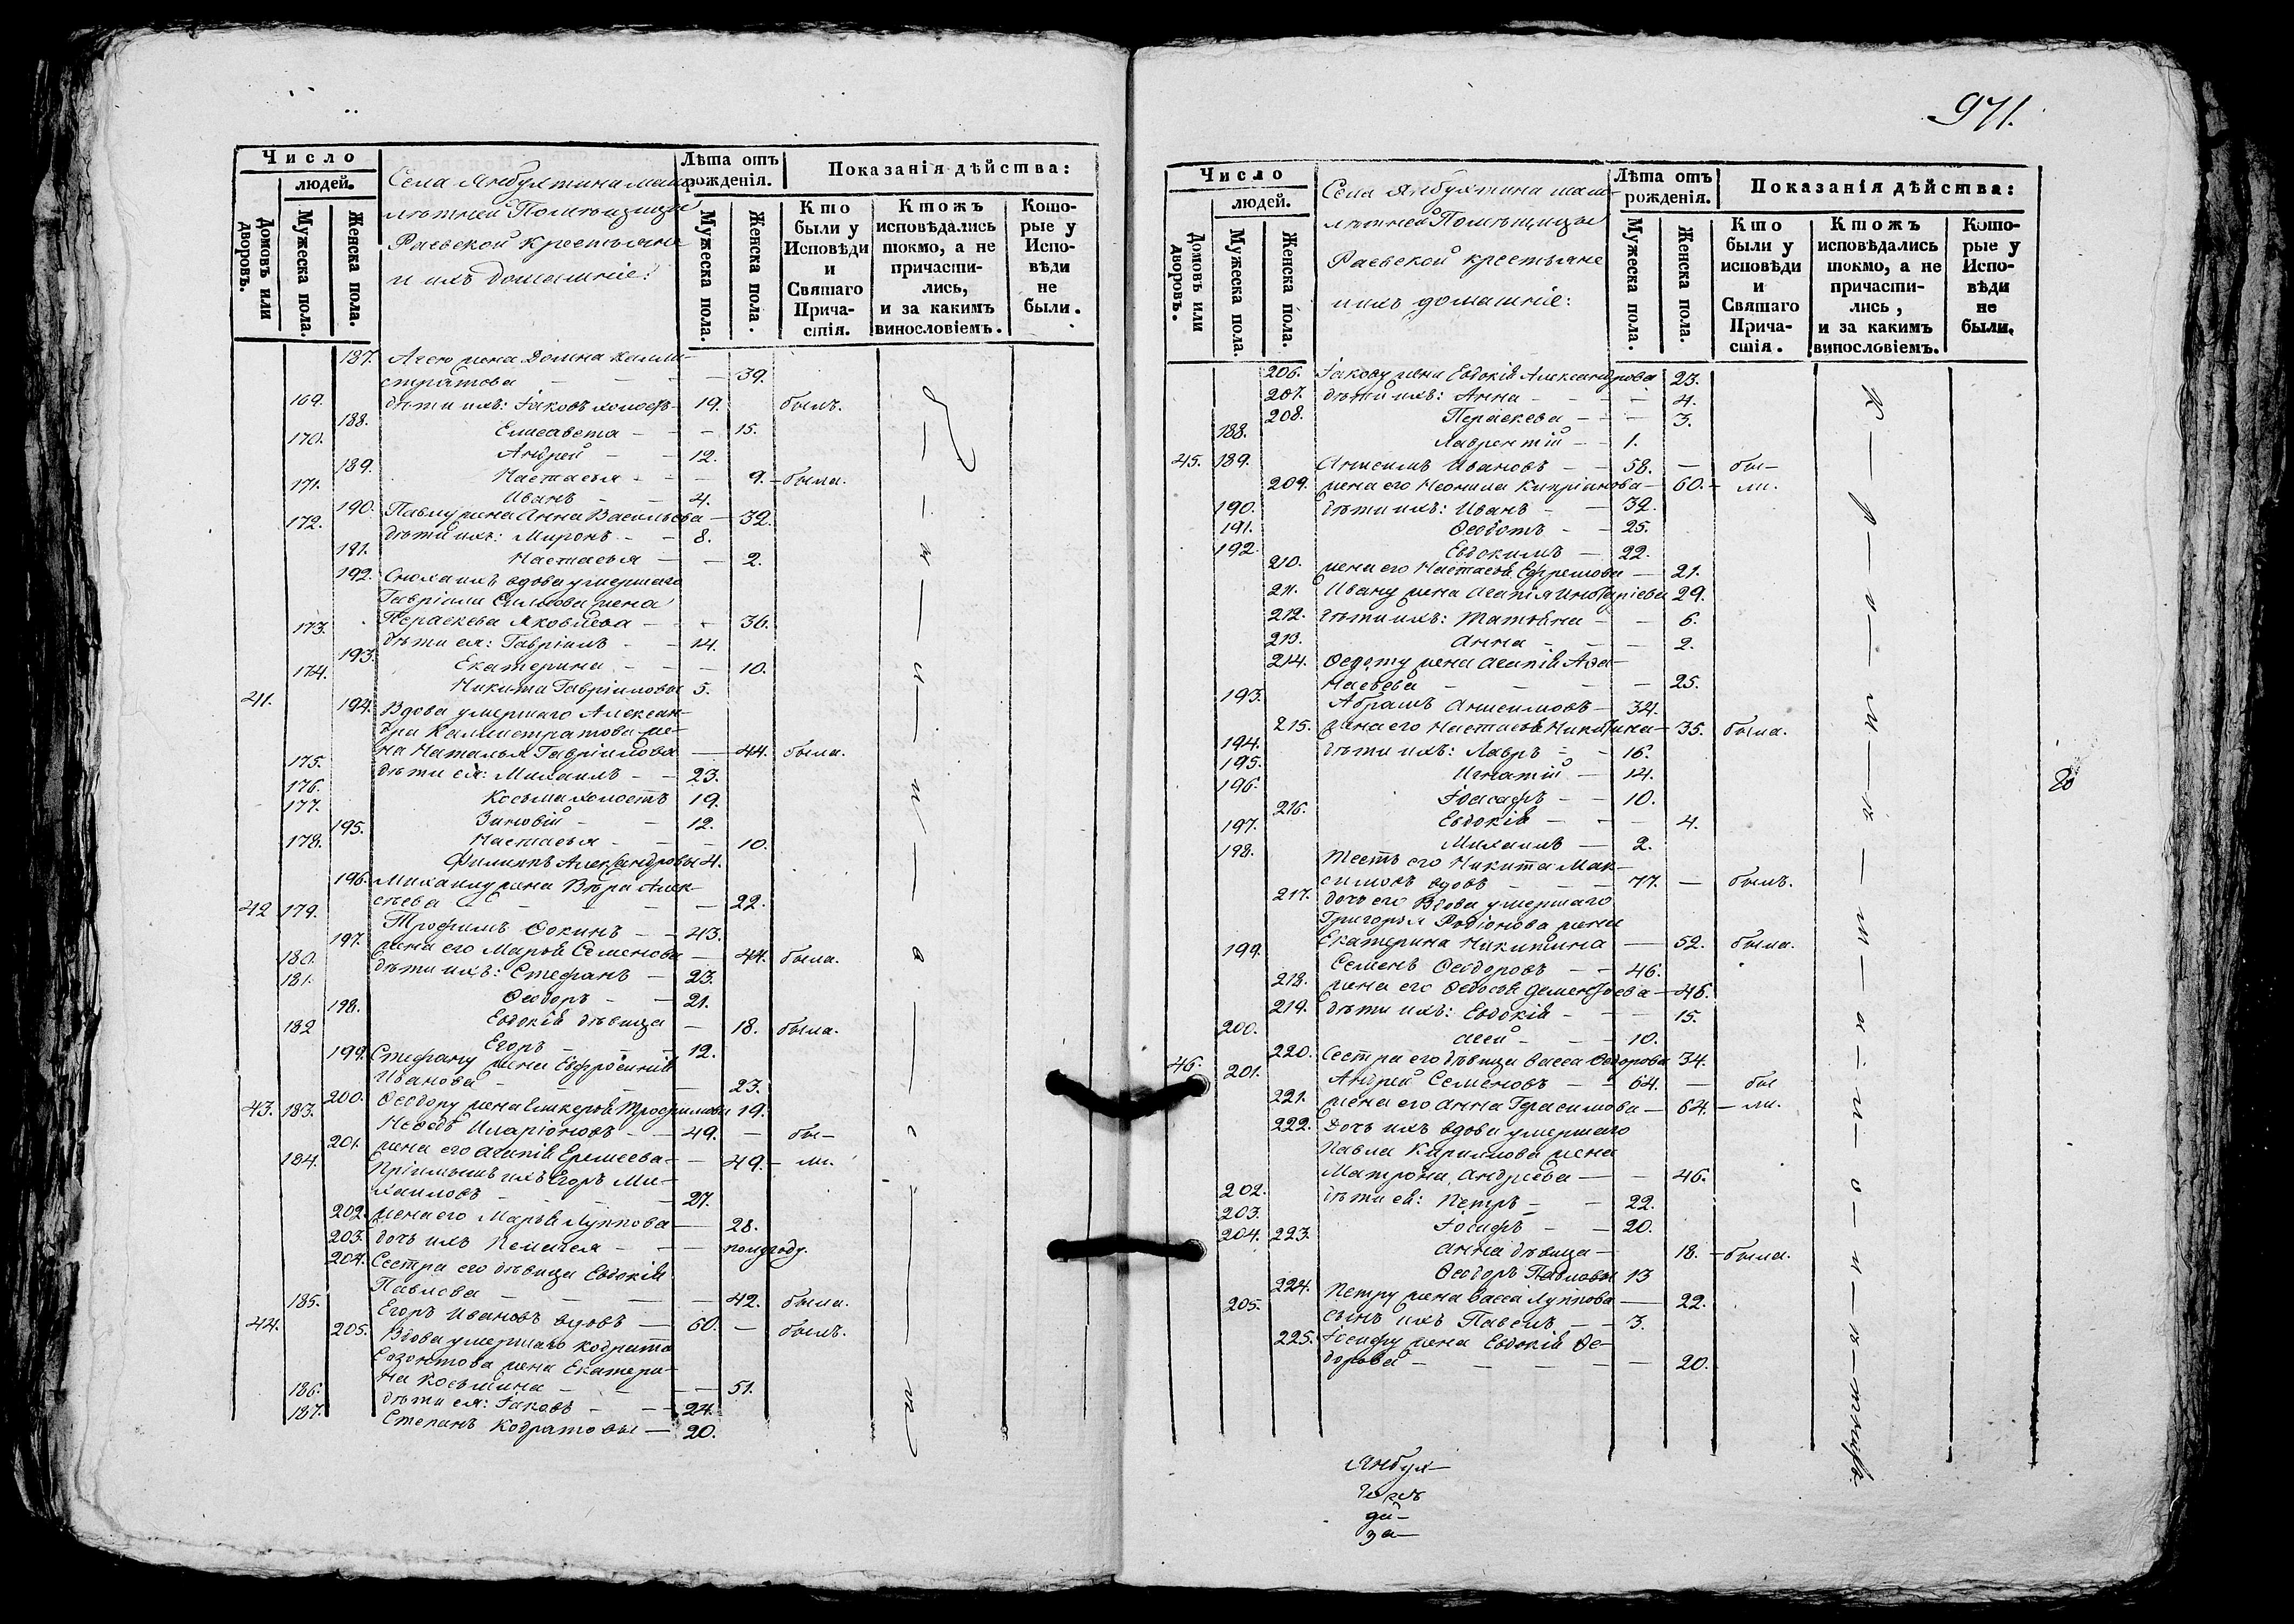 Число
людей.
Домовъ или дворовъ.
Мужеска пола.
Женска пола.
Села Янбухтина мало-
лѣтней Помѣщицы
Раевской крестьяне
и ихъ домашніе:
Лѣта отъ рожденія.
Мужеска пола.
Женска пола.
Показанія дѣйства:
Кто были у Исповѣди и Святаго Причастія.
Ктожъ исповѣдались токмо, а не причасти-лись, и за какимъ винословіемъ.
Кото-рые у Испо-вѣди не были.
187. Агею жена Домна Калли-
стратова — 39.
169. дѣти ихъ: Іаковъ холостъ 19. былъ.
188. Елисавета — 15.
170. Андрей — 12.
189. Настасья — 9. была.
171. Иванъ — 4.
190. Павлу жена Анна Васильева — 32.
172. дѣти ихъ: Миронъ — 8.
191. Настасья — 2.
192. Сноха ихъ вдова умершаго
Гавріила жена
Пераскева Яковлева — 36.
173. дѣти ея: Гавріилъ — 14.
193. Екатерина — 10.
174. Никита Гавріиловы 5.
41. 194. Вдова умершаго Алексан-
дра Каллистратова же-
на Наталья Гавріилова — 44. была.
175. дѣти ея: Михаилъ — 23.
176. Косьма холостъ 19.
177. Зиновій — 12.
195. Настасья — 10.
178. Филиппъ Александровы 4.
196. Михаилу жена Вѣра Алек-
сѣева — 22.
42 179. Трофимъ Фокинъ — 43.
197. жена его Марья Семенова — 44. была.
180. дѣти ихъ: Стефанъ — 23.
181. Ѳеодоръ — 21.
198. Евдокія дѣвица — 18. была.
182 Егоръ — 12.
199. Стефану жена Евфросинія
Иванова — 23.
200. Ѳеодору жена Гликерія Трофимова 19.
43. 183. Иларіоновъ — 49. — бы-
201. жена его Агапія Еремеева — 49. — ли.
184. Пріимышъ ихъ Егоръ Ми-
хаиловъ — 27.
202. жена его Марья Луппова — 28.
203. дочь ихъ Пелагея — полугоду.
204. Сестра его дѣвица Евдокія
Павлова — 42. была.
44. 185. Егоръ Ивановъ вдовъ — 60. — былъ.
205. Вдова умершаго Кодрата
Созонтова жена Екатери-
на Косьмина — 51.
186. дѣти ея: Іаковъ — 24.
187. Степанъ Кодратовы — 20.
971.
Число
людей.
Домовъ или дворовъ.
Мужеска пола.
Женска пола.
Села Янбухтина мало-
лѣтней Помѣщицы
Раевской крестьяне
и ихъ домашніе:
Лѣта отъ рожденія.
Мужеска пола.
Женска пола.
Показанія дѣйства:
Кто были у исповѣди и Святаго Причастія.
Ктожъ исповѣдались токмо, а не причасти-лись, и за какимъ винословіемъ.
Кото-рые у Испо-вѣди не были.
206. Іакову жена Евдокія Александрова 23.
207. дѣти ихъ: Анна — 4.
208. Пераскева — 3.
188. Лаврентій — 1.
45. 189. Анисимъ Ивановъ — 58. — бы-
209. жена его Неонила Кипріанова — 60. — ли.
190. дѣти ихъ: Иванъ — 32.
191. Ѳеодотъ — 25.
192. Евдокимъ — 22.
210. жена его Настасья Ефремова — 21.
211. Ивану жена Агапія 29.
212. дѣти ихъ: Татьяна — 6.
213. Анна — 2.
214. Ѳедоту жена Агапія Аѳа-
насьева — 25.
193. Абрамъ Анисимовъ — 34.
215. жена его Настасья Никитина — 35. была.
194. дѣти ихъ: Лавръ — 16.
195. Игнатій — 14.
196. Іоасафъ — 10.
216. Евдокія — 4.
197. Михаилъ — 2.
198. Тесть его Никита Мак-
симовъ вдовъ — 77. — былъ.
217. дочь его Вдова умершаго
Григорья Родіонова жена
Екатерина Никитина — 52. была.
199. Семенъ Ѳеодоровъ — 46.
218. жена его Ѳедосья Дементьева — 46.
219. дѣти ихъ: Евдокія — 15.
200. Агей — 10.
220. Сестра его дѣвица Васса Ѳедорова 34.
46. 201. Андрей Семеновъ — 64. — бы
221. жена его Анна Герасимова — 64. — ли.
222. Дочь ихъ вдова умершаго
Павла Кириллова жена
Матрона Андреева — 46.
202. дѣти ея: Петръ — 22.
203. Іосифъ — 20.
204. 223. Анна дѣвица — 18. — была.
Ѳеодоръ Павловы 13
224. Петру жена Васса Луппова — 22.
205. сынъ ихъ Павелъ — 3.
225. Іосифу жена Евдокія Ѳе-
дорова — 20.